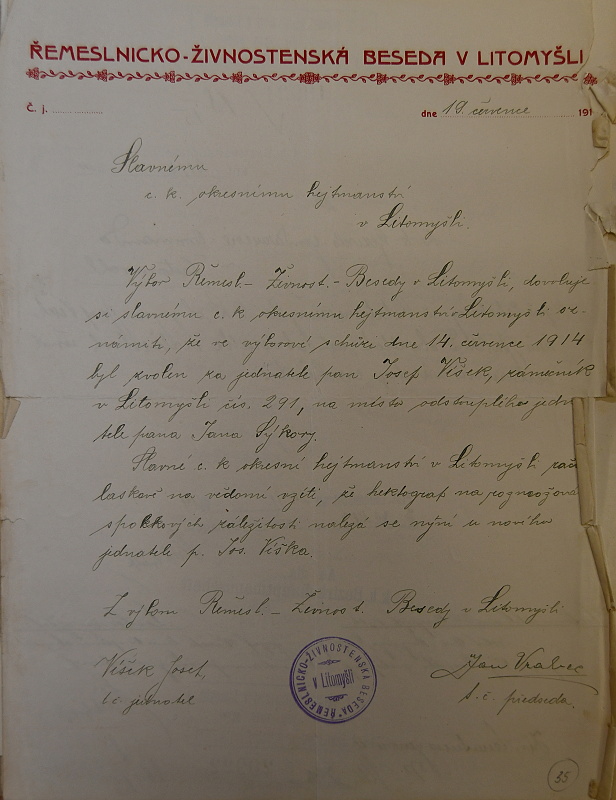 ŘEMESLNICKO-ŽIVNOSTENSKÁ BESEDA V LITOMYŠLI
č. j. ............ dne 19. července 191
Slavnému
c. k. okresnímu hejtmanství
v Litomyšli.
Výbor Řemesl.- Živnost.- Besedy v Litomyšli, dovoluje
si slavnému c. k okresnímu hejtmanství v Litomyšli sez-
námiti, že ve výborové schůzi dne 14. července 1914
byl zvolen za jednatele pan Josef Víšek, zámečník
v Litomyšli čís. 291, na místo odstouplého jedna
tele pana Jana Sýkory.
Slavné c. k okresní hejtmanství v Litomyšli račiž
laskavě na vědomí vzíti, že hektograf na rozmnožová
spolkových záležitostí nalezá se nyní u nového
jednatele p. Jos. Víška.
Z výboru Řemesl. - Živnost. Besedy v Litomyšli
Víšek Josef, Jan Vrabec
t. č. jednatel t. č. předseda.
ŘEMESLNICKO-ŽIVNOSTENSKÁ BESEDA
v Litomyšli
35